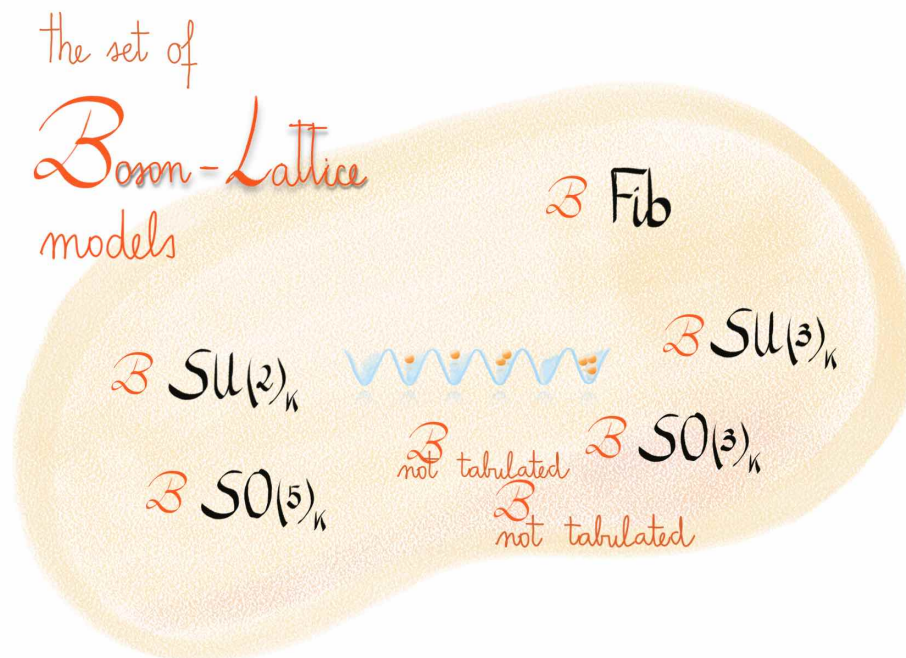 the set of
Boson-Lattice
models
B Fib
B SU(3)K
B SU(2)K
B SO(3)K
B
not tabulated
B SO(5)K
B
not tabulated